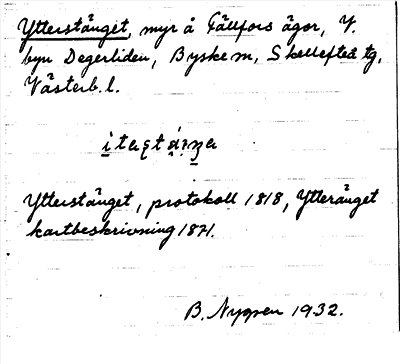 Ytterstånget, myr å Fällfors ägor, V.
byn Degerliden, Byske m, Skellefteå tg,
Västerb. l.
Ytterstånget, protokoll 1818, Ytterånget
kartbeskrivning 1871.
B. Nygren 1932.